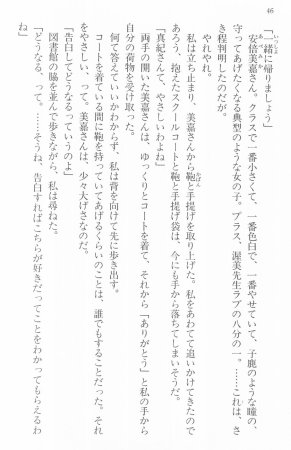 46
「一緒に帰りましょう」
いっしょ
安倍美嘉さん。クラスで一番小さくて、一番色白で、一番やせていて、子鹿のような瞳の、
守ってあげたくなる典型のような女の子。プラス、渥美先生ラブの八分の一。……これは、さ
っき程判明したのだが。
やれやれ。
私は立ち止まり、美嘉さんから鞄と手提げを取り上げた。私をあわてて追いかけてきたので
かばん
あろう、抱えたスクールコートと鞄と手提げ袋は、今にも手から落ちてしまいそうだ。
「真紀さんて、やさしいわよね」
両手の開いた美嘉さんは、ゆっくりとコートを着て、それから「ありがとう」と私の手から
自分の荷物を受け取った。
何て答えていいかわからず、私は背を向けて先に歩き出す。
コートを着ている間に鞄を持っていてあげるくらいのことは、誰でもすることだった。それ
をやさしい、って。美嘉さんは、少々大げさなのだ。
「告白してどうなるっていうのよ」
図書館の脇を並んで歩きながら、私は尋ねた。
「どうなる、って。……そうね、告白すればこちらが好きだってことをわかってもらえるわ
ね」